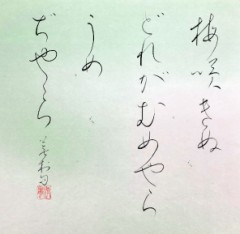 梅咲きぬ
どれがむめやら
うめ
ぢやら